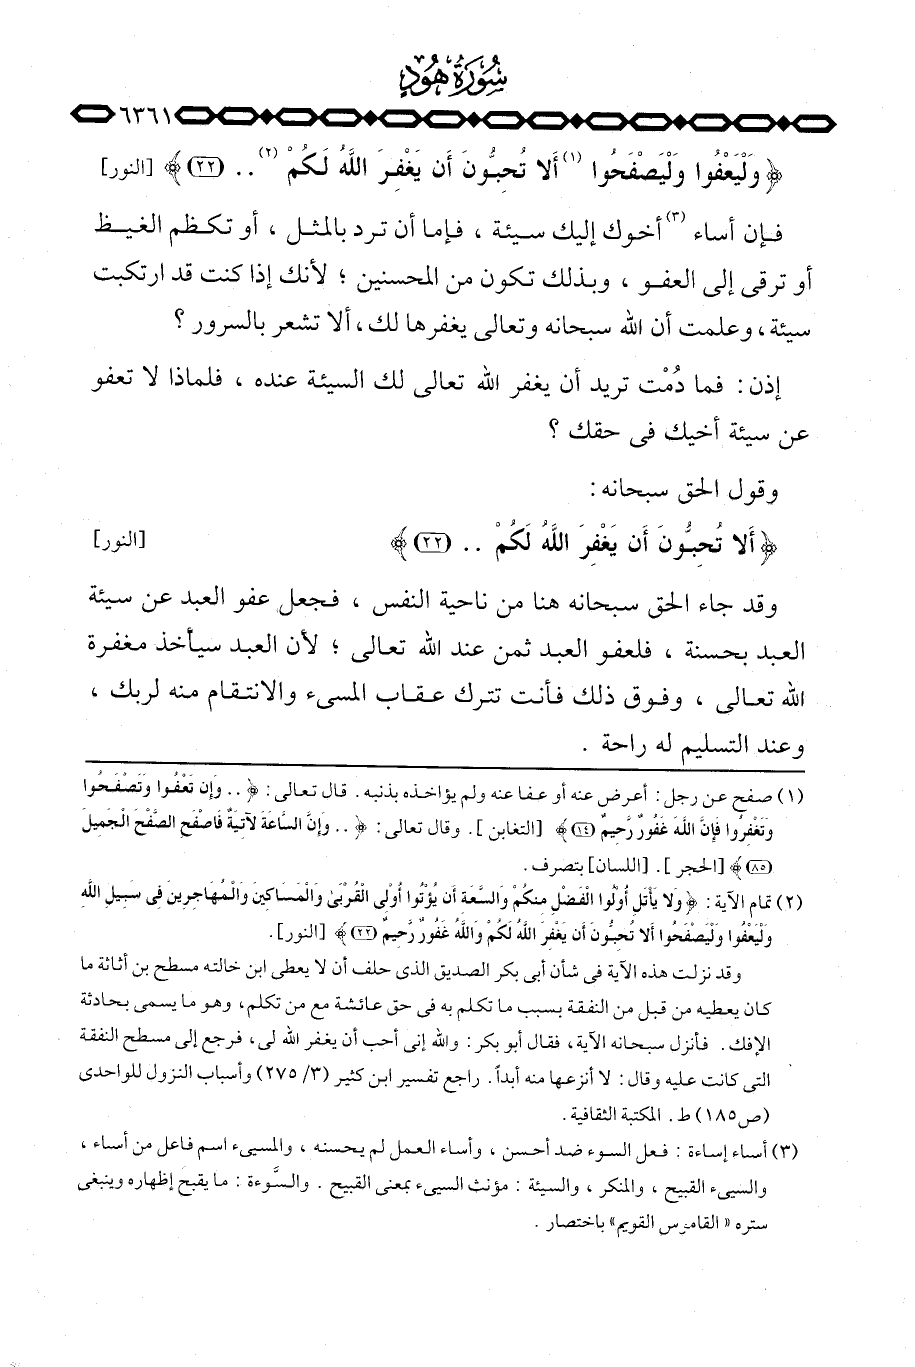 سُورَةُ هُودٍ
٦٣٦١
﴿ وَلْيَعْفُوا وَلْيَصْفَحُوا (١) أَلا تُحِبُّونَ أَن يَغْفِرَ اللَّهُ لَكُمْ (٢) .. (٢٢) ﴾ [النور]
فـإن أساء (٣) أخوك إليك سـيئة ، فـإما أن تـرد بالمثـل ، أو تـكظـم الغيـظ
أو ترقى إلى العفـو ، وبـذلك تكون من المحسنين ؛ لأنك إذا كنت قد ارتكبت
سيئة، وعلمت أن الله سبحانه وتعالى يغفرها لك، ألا تشعر بالسرور ؟
إذن : فما دُمْت تريد أن يغفر الله تعالى لك السيئة عنده ، فلماذا لا تعفو
عن سيئة أخيك فى حقك ؟
وقول الحق سبحانه :
﴿ أَلا تُحِبُّونَ أَن يَغْفِرَ اللَّهُ لَكُمْ .. (٢٢) ﴾ [النور]
وقد جاء الحق سبحانه هنا من ناحية النفس ، فـجعل عفو العبد عن سيئة
العبد بحسنة ، فلعفو العبد ثمن عند الله تعالى ؛ لأن العبد سيأخذ مغفرة
الله تعـالى ، وفـوق ذلك فـأنت تترك عـقـاب المسىء والانتقـام منه لربك ،
وعند التسليم له راحة .
(١) صفح عن رجل : أعرض عنه أو عفا عنه ولم يؤاخذه بذنبه . قال تعالى : ﴿ .. وَإِن تَعْفُوا وَتَصْفَحُوا
وَتَغْفِرُوا فَإِنَّ اللَّهَ غَفُورٌ رَّحِيمٌ (١٤) ﴾ [التغابن ] . وقال تعالى : ﴿ .. وَإِنَّ السَّاعَةَ لآتِيَةٌ فَاصْفَحِ الصَّفْحَ الْجَمِيلَ
(٨٥) ﴾ [الحجر ] . [اللسان] بتصرف .
(٢) تمام الآية : ﴿ وَلا يَأْتَلِ أُوْلُوا الْفَضْلِ مِنكُمْ وَالسَّعَةِ أَن يُؤْتُوا أُوْلِي الْقُرْبَىٰ وَالْمَسَاكِينَ وَالْمُهَاجِرِينَ فِي سَبِيلِ اللَّهِ
وَلْيَعْفُوا وَلْيَصْفَحُوا أَلا تُحِبُّونَ أَن يَغْفِرَ اللَّهُ لَكُمْ وَاللَّهُ غَفُورٌ رَّحِيمٌ (٢٢) ﴾ [النور] .
وقد نزلت هذه الآية فى شأن أبى بكر الصديق الذى حلف أن لا يعطى ابن خالته مسطح بن أثاثة ما
كان يعطيه من قبل من النفقة بسبب ما تكلم به فى حق عائشة مع من تكلم، وهو ما يسمى بحادثة
الإفك . فأنزل سبحانه الآية، فقال أبو بكر : والله إنى أحب أن يغفر الله لى، فرجع إلى مسطح النفقة
التى كانت عليه وقال : لا أنزعها منه أبداً . راجع تفسير ابن كثير (٣/ ٢٧٥) وأسباب النزول للواحدى
(ص١٨٥) ط. المكتبة الثقافية .
(٣) أساء إساءة : فـعل السوء ضد أحسن ، وأساء العمل لم يحسنه ، والمسيىء اسم فاعل من أساء ،
والسيىء القبيح ، والمنكر ، والسيئة : مؤنث السيىء بمعنى القبيح . والسَّوءة : ما يقبح إظهاره وينبغى
ستره « القاموس القويم» باختصار .